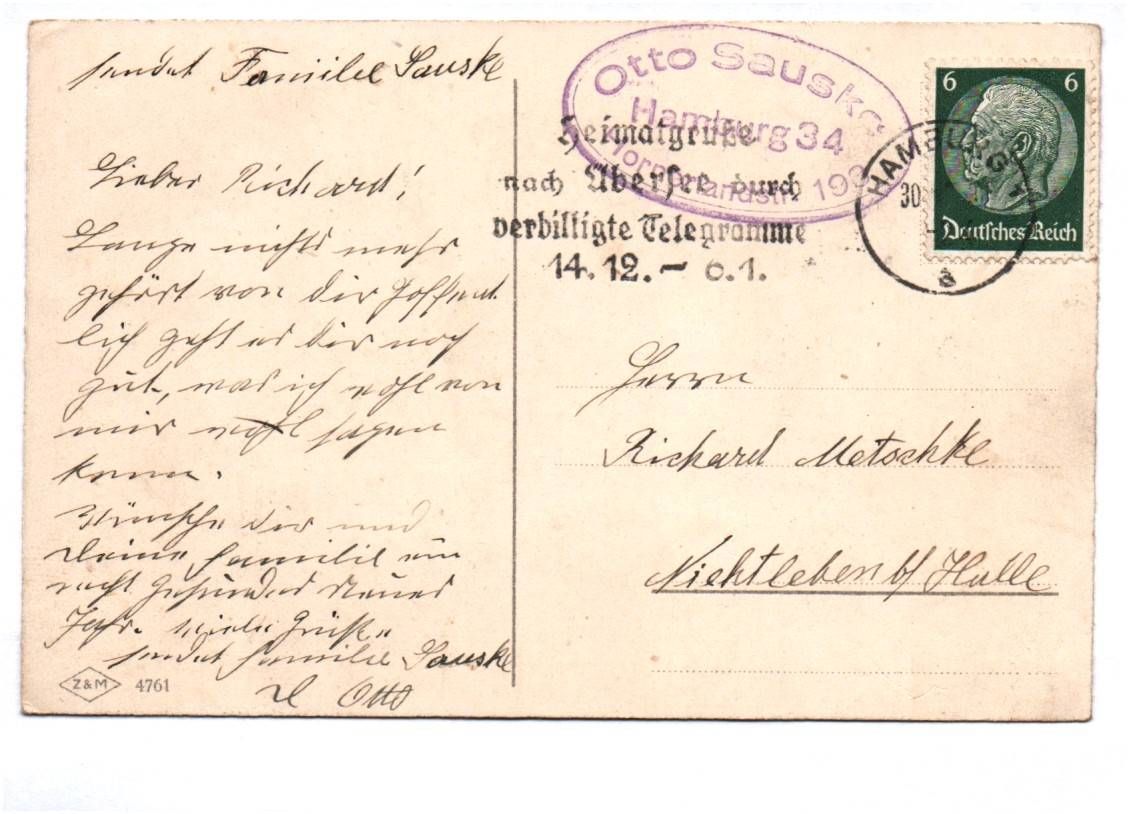 sendet Familie Sauske
Lieber Richard!
Lange nichts mehr
gehört von dir hoffent
lich geht es dir noch
gut, was ich wohl von
mir wohl sagen
kann.
Wünsche dir und
deine Familie ein
recht gesundes Neues
Jahr. viele Grüße
sendet Familie Sauske
Otto
Z&M 4761
Otto Sauske
Hamburg 34
Horner Landstr. 19
Heimatgrüße
nach Übersee durch
verbilligte Telegramme
14.12.– 6.1.
HAMBURG 1
30
a
6 6
Deutsches Reich
Herrn
Richard Metschke
Nietleben b/ Halle